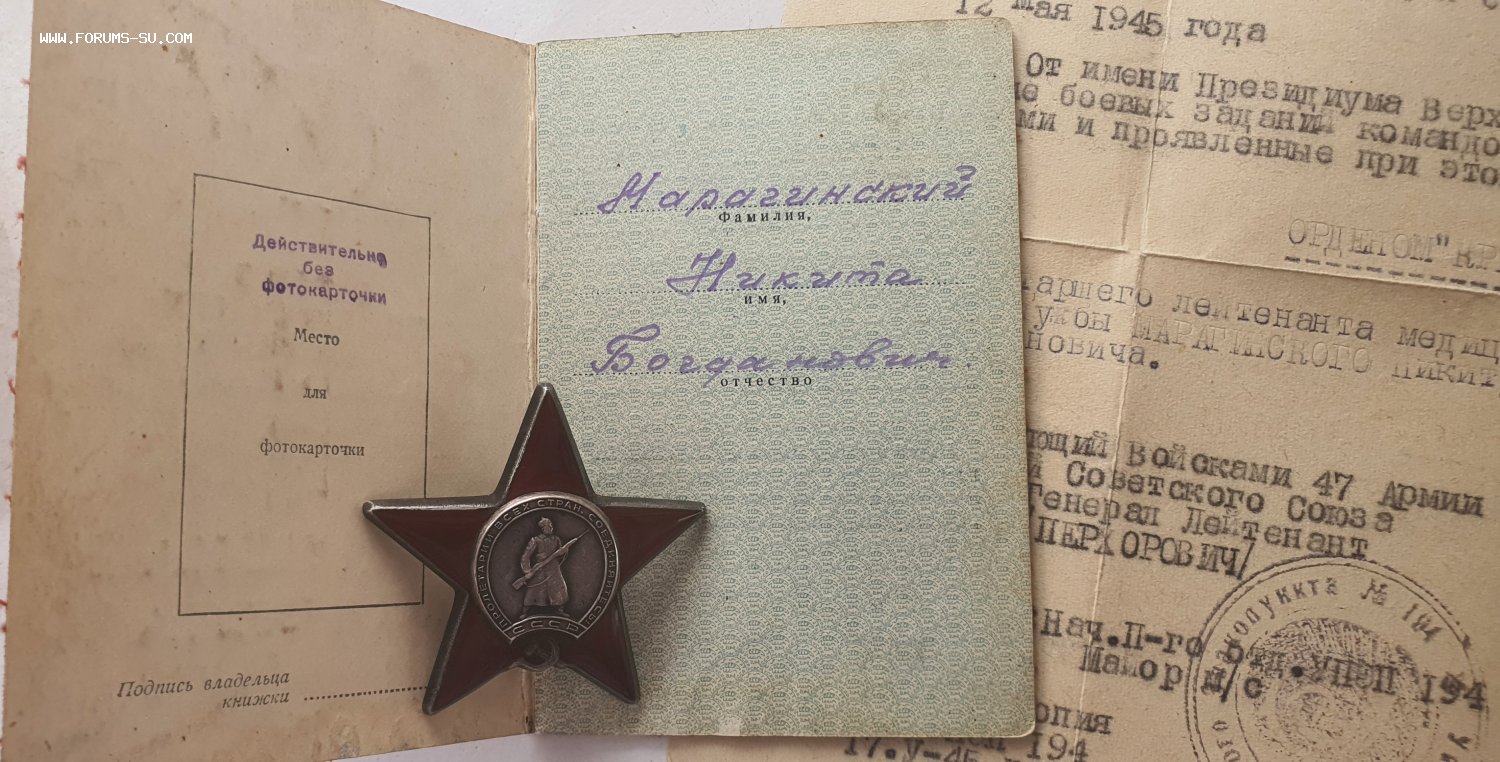 WWW.FORUMS-SU.COM
Действительно
без
фотокарточки
Место
для
фотокарточки
Подпись владельца
книжки
Марагинский
Фамилия,
Никита
имя,
Богданович
отчество
ПРОЛЕТАРИИ ВСЕХ СТРАН, СОЕДИНЯЙТЕСЬ!
СССР
12 мая 1945 года
От имени Президиума Верх
е боевых заданий командо
ми и проявленные при это
ОРДЕНОМ "КРА
таршего лейтенанта медиц
ужбы МАРАГИНСКОГО Никит
новича.
ющий Войсками 47 Армии
Советского Союза
Генерал Лейтенант
ПЕРХОРОВИЧ/
Нач. П-го Отд. УПЭП 194
Майор м/с
опия
17.У-45
194
№ 194